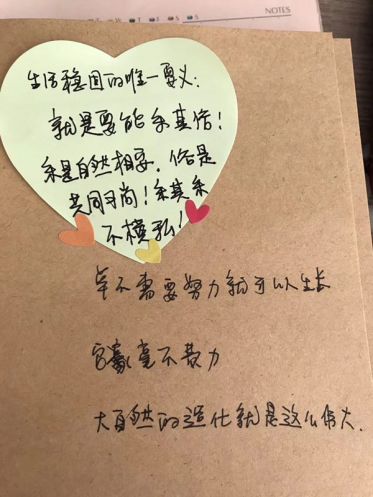 NOTES
生活稳固的唯一要义:
就是要能系其俗!
系是自然相妥,俗是
共同时尚!系其系
不模弘!
草不需要努力就可以生长
毫不费力
大自然的造化就是这么伟大.